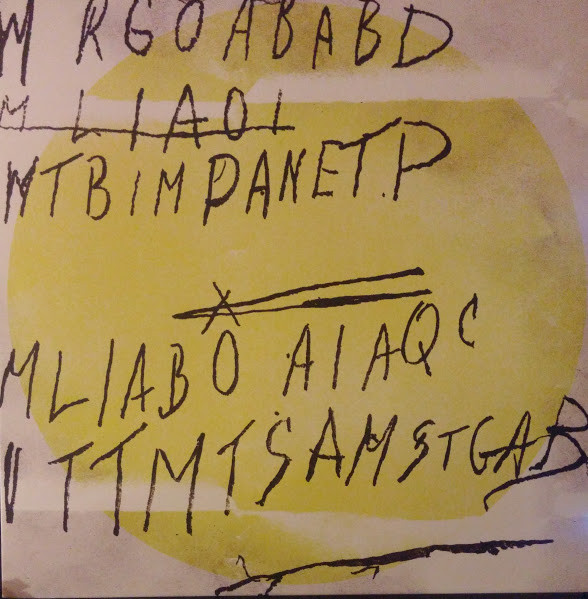 M RGOABABD
MLIAOI
MTBIMPANETP
X
MLIABO AIAQC
ITTMTSAMSTGAB